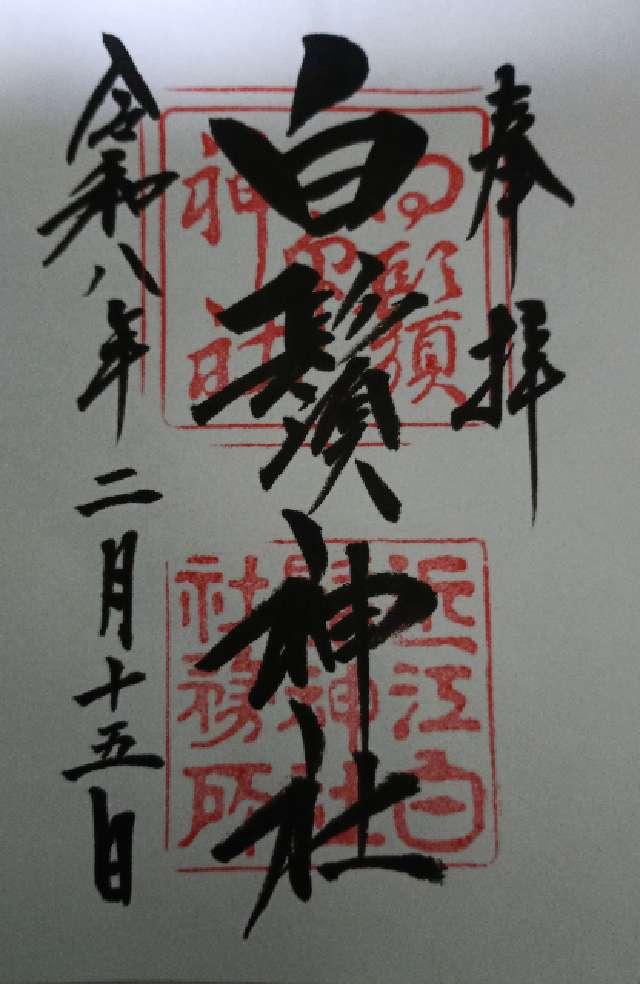 奉拝
白鬚神社
令和八年二月十五日
近江白
鬚神社
社務所